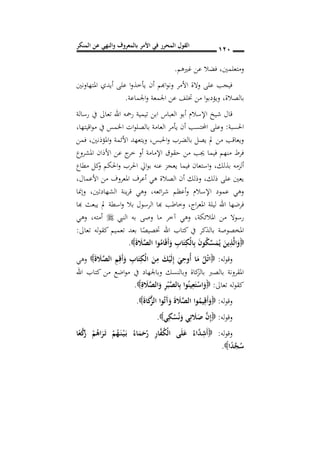 القول المحرر في الأمر بالمعروف والنهي عن المنكر
١٢٠
ومتعلمين، فضلا عن غيرهم.
فيجب على ولاة الأمر ونوابهم أن يأخذوا على أيدي المتهاونين
بالصلاة، ويؤدبوا من تخلف عن الجمعة والجماعة.
قال شيخ الإسلام أبو العباس ابن تيمية رحمه الله تعالى في رسالة
الحسبة: وعلى المحتسب أن يأمر العامة بالصلوات الخمس في مواقيتها،
ويعاقب من لم يصل بالضرب والحبس، ويتعهد الأئمة والمؤذنين، فمن
فرط منهم فيما يجب من حقوق الإمامة أو خرج عن الأذان المشروع
ألزمه بذلك، واستعان فيما يعجز عنه بوالي الحرب والحكم وكل مطاع
يعين على ذلك، وذلك أن الصلاة هي أعرف المعروف من الأعمال،
وهي عمود الإسلام وأعظم شرائعه، وهي قرينة الشهادتين، وإنما
فرضها الله ليلة المعراج، وخاطب بها الرسول بلا واسطة لم يبعث بها
رسولا من الملائكة، وهي آخر ما وصى به النبي ﷺ أمته، وهي
المخصوصة بالذكر في كتاب الله تخصيصًا بعد تعميم كقوله تعالى:
﴿وَالَّذِينَ يُمَسِّكُونَ بِالْكِتَابِ وَأَقَامُوا الصَّلَاةَ﴾.
وقوله: ﴿اتْلُ مَا أُوحِيَ إِلَيْكَ مِنَ الْكِتَابِ وَأَقِمِ الصَّلَاةَ﴾ وهي
المقرونة بالصبر بالزكاة وبالنسك وبالجهاد في مواضع من كتاب الله
كقوله تعالى: ﴿وَاسْتَعِينُوا بِالصَّبْرِ وَالصَّلَاةِ﴾.
وقوله: ﴿وَأَقِيمُوا الصَّلَاةَ وَآتُوا الزَّكَاةَ﴾.
وقوله: ﴿إِنَّ صَلَاتِي وَنُسُكِي﴾.
وقوله: ﴿أَشِدَّاءُ عَلَى الْكُفَّارِ رُحَمَاءُ بَيْنَهُمْ تَرَاهُمْ رُكَّعًا
سُجَّدًا﴾.